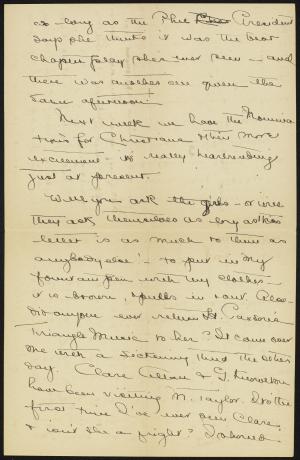 as long as the Phil President
says she thinks it was the best
chapter play she's ever seen – and
there was another one given the
same afternoon.
Next week we have the Nomina-
tions for Christians & then more
excitement – It's really heartrending
just at present.
Will you ask the girls – or will
they ask themselves as long as this
letter is as much to them as
anybody else! – to put in my
fountain pen with my clothes –
it is brown, & pulls in & out. Also
did anyone ever return
Triangle Music to her? It came over
me with a sickening thud the other
day. Clare & G. Knowlton
have been visiting M. Taylor. It's the
first time I've ever seen Clare,
& isn't she a fright?